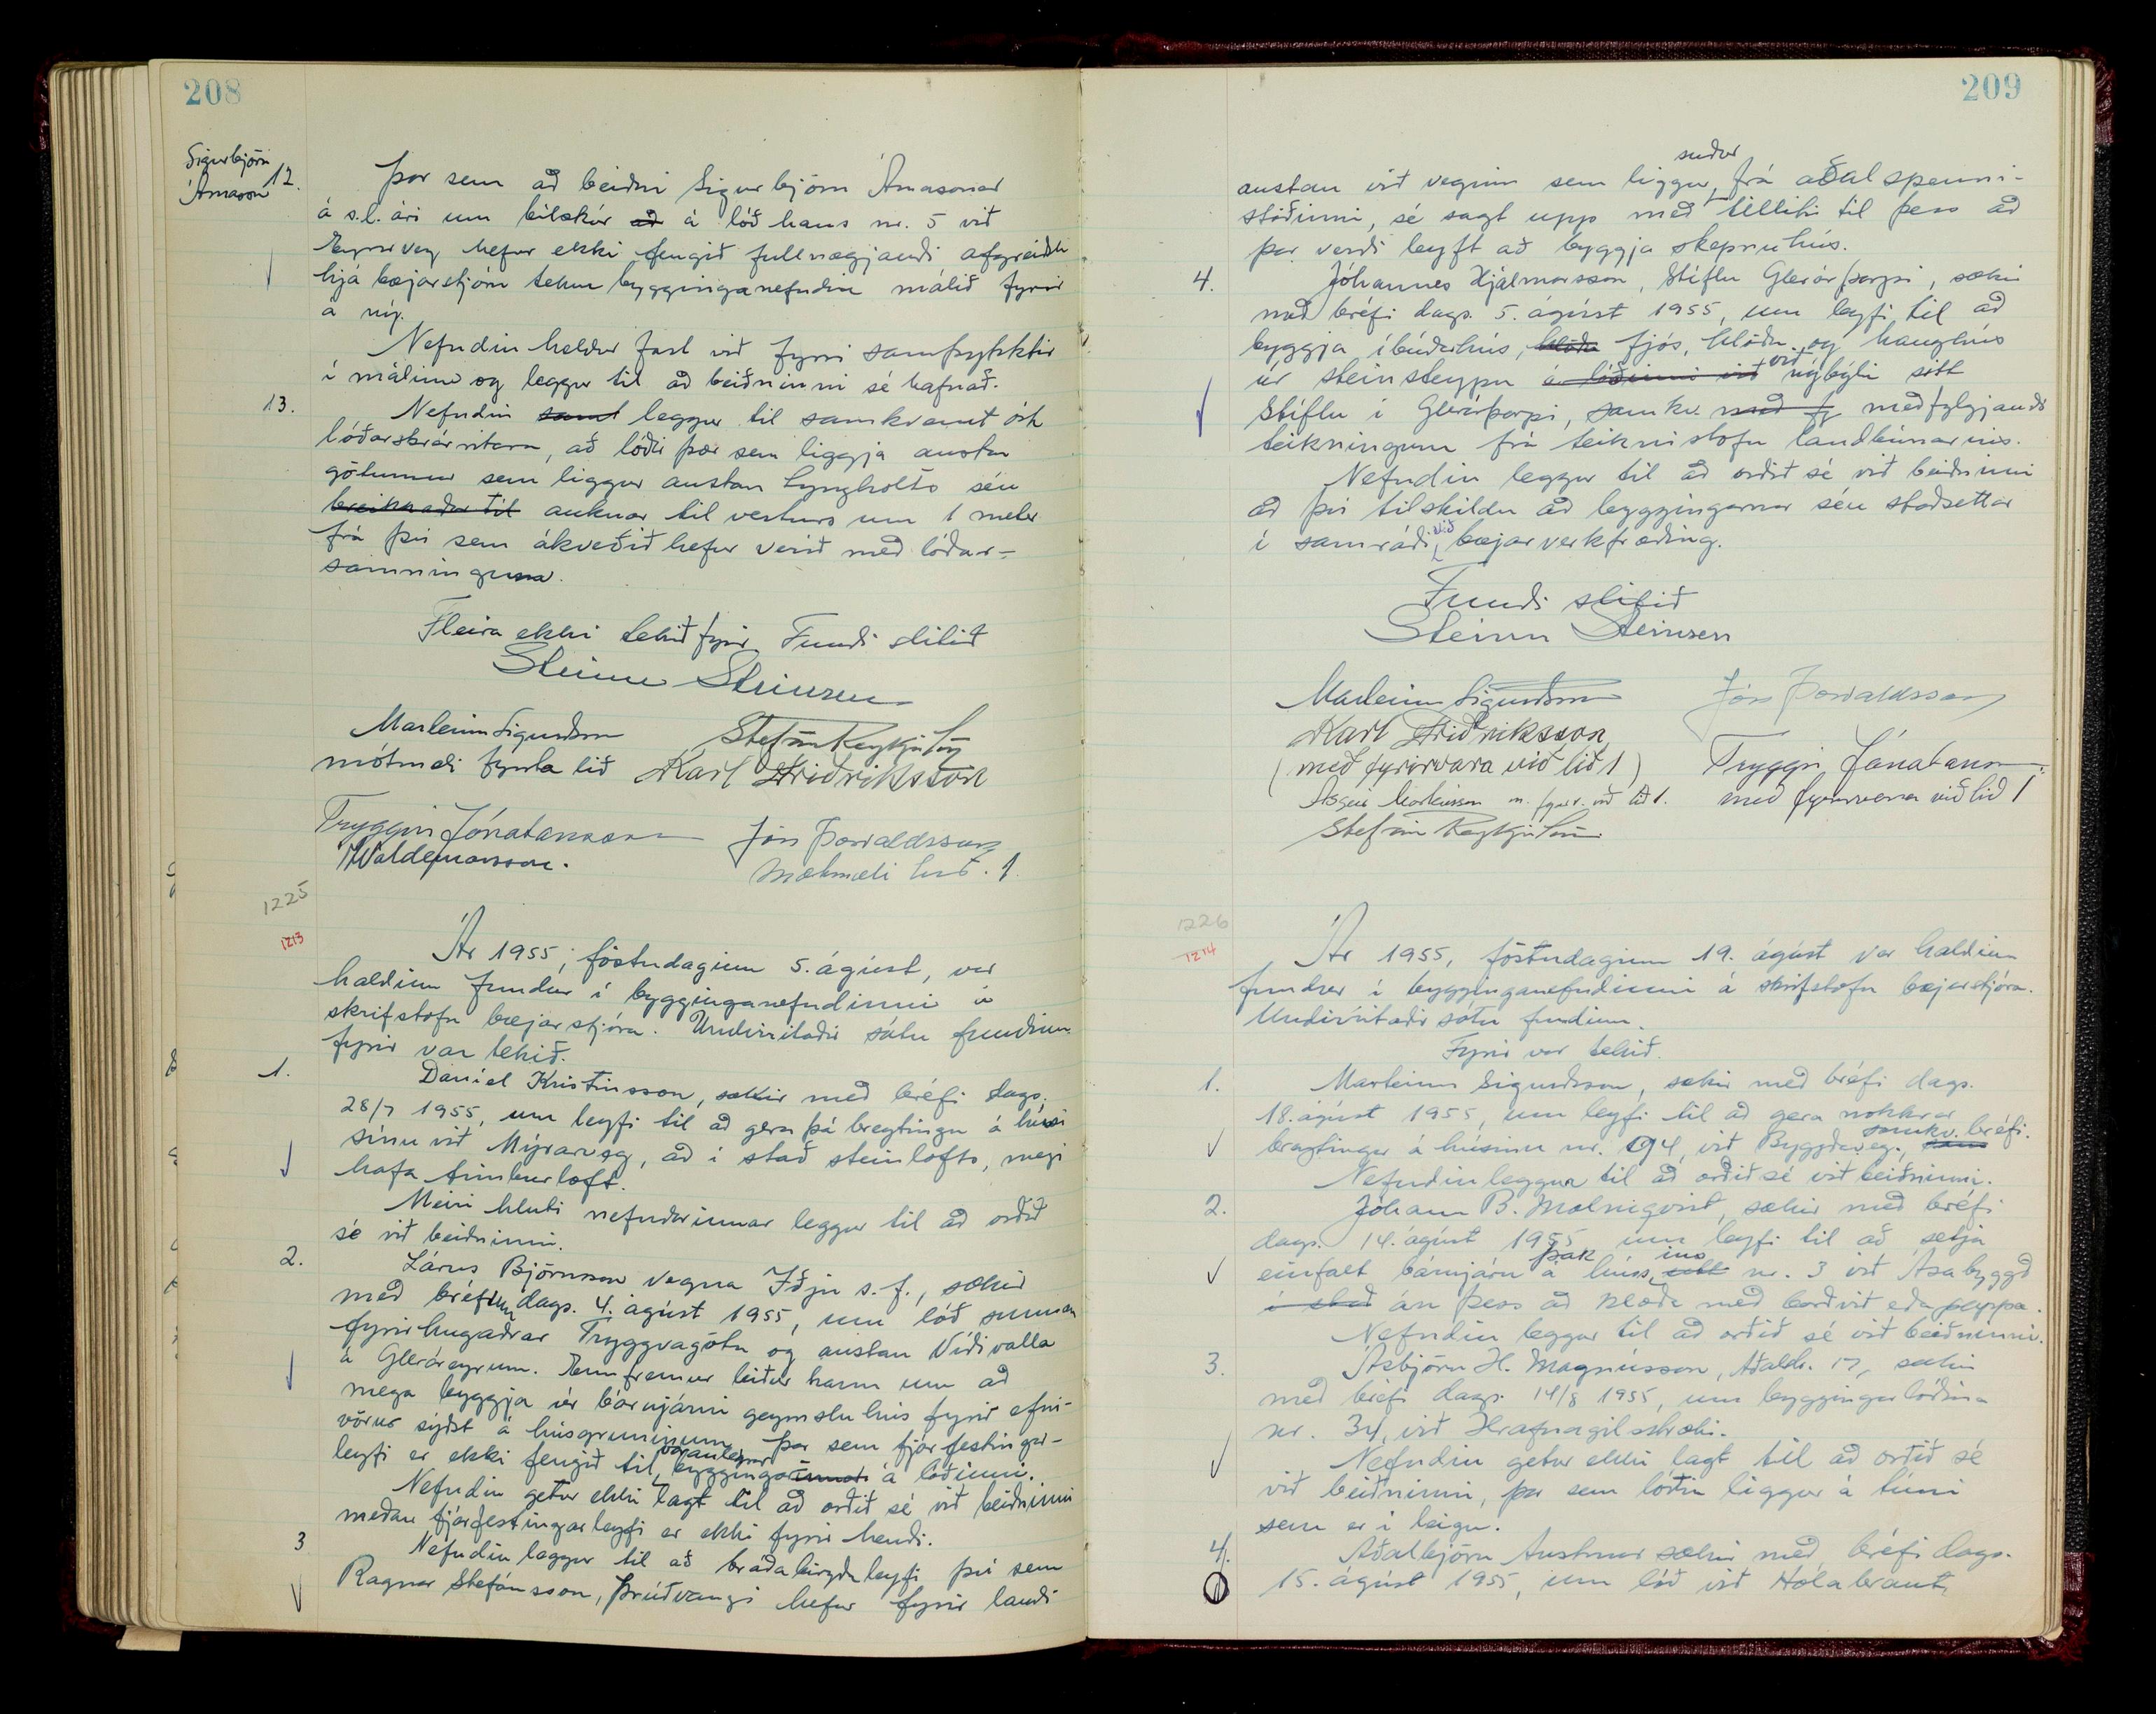 208
Sigurbjörn
Árnason 12.
Þar sem að beiðni Sigurbjörn Árnasonar
á s.l. ári um bílskúr að á lóð hans nr. 5 við
Eyrarveg hefur ekki fengið fullnægjandi afgreiðslu
hjá bæjarstjórn tekur bygginganefndin málið fyrir
á ný.
Nefndin heldur fast við fyrri samþykktir
í málinu og leggur til að beiðninni sé hafnað.
13. Nefndin leggur til samkvæmt ósk
lóðarskrárritara, að lóðir þær sem liggja austan
götunnar sem liggur austan Lyngholts séu
breikkaðar til auknar til vesturs um 1 meter
frá því sem ákveðið hefur verið með lóðar-
samningum.
Fleira ekki tekið fyrir. Fundi slitið
Steinn Steinsen
Marteinn Sigurðsson
mótmæli fyrsta lið
Stefán Reykjalín
Karl Friðriksson
Tryggvi Jónatansson
Jón Þorvaldsson
Mótmæli lið. 1.
1225
1213
Ár 1955, föstudaginn 5. ágúst, var
haldinn fundur í bygginganefndinni á
skrifstofu bæjarstjóra. Undirritaðir sátu fundinn.
fyrir var tekið.
1. Daníel Kristinsson, sækir með bréfi dags.
28/7 1955, um leyfi til að gera þá breytingu á húsi
sínu við Mýraveg, að í stað steinlofts, megi
hafa timburloft.
Meiri hluti nefndarinnar leggur til að orðið
sé við beiðninni.
2. Lárus Björnsson vegna Iðju s.f., sækir
með bréfum dags. 4. ágúst 1955, um lóð sunnan
fyrirhugaðrar Tryggvagötu og austan Víðivalla
á Gleráreyrum. Ennfremur biður hann um að
mega byggja úr bárujárni geymsluhús fyrir efni-
vörur syðst á húsgrunninum þar sem fjárfestingar-
leyfi er ekki fengið til varanlegrar byggingar á lóðinni.
Nefndin getur ekki lagt til að orðið sé við beiðninni
meðan fjárfestingarleyfi er ekki fyrir hendi.
3 Nefndin leggur til að bráðabirgðaleyfi því sem
Ragnar Stefánsson, Þrúðvangi hefur fyrir landi
209
austan við veginn sem liggur suður frá aðalspenni-
stöðinni, sé sagt upp með tilliti til þess að
þar verði leyft að byggja skepnuhús.
4. Jóhannes Hjálmarsson, Stíflu Glerárþorpi, sækir
með bréfi dags. 5. ágúst 1955, um leyfi til að
byggja íbúðarhús, hlöðu fjós, hlöðu og haughús
úr steinsteypu á lóðinni við við nýbýli sitt
Stíflu í Glerárþorpi, samkv. með fy meðfylgjandi
teikningum frá teiknistofu landbúnaðarins.
Nefndin leggur til að orðið sé við beiðninni
að því tilskildu að byggingarnar séu staðsettar
í samráði við bæjarverkfræðing.
Fundi slitið
Steinn Steinsen
Marteinn Sigurðsson
Jón Þorvaldsson
Karl Friðriksson
(með fyrirvara við lið 1)
Tryggvi Jónatansson
með fyrirvara við lið 1
m. fyrirv. við lið 1.
Stefán Reykjalín
1226
1214
Ár 1955, föstudaginn 19. ágúst var haldinn
fundur í bygginganefndinni á skrifstofu bæjarstjóra.
Undirritaðir sátu fundinn.
Fyrir var tekið.
1. Marteinn Sigurðsson, sækir með bréfi dags.
18. ágúst 1955, um leyfi til að gera nokkrar
breytingar á húsinu nr. 94, við Byggðaveg, samkv. bréfi.
Nefndin leggur til að orðið sé við beiðninni.
2. Jóhann B. Malmqvist, sækir með bréfi
dags. 14. ágúst 1955 um leyfi til að setja
einfalt bárujárn á þak húss ins nr. 3 við Ásabyggð
í stað án þess að klæða með borðvið eða pappa.
Nefndin leggur til að orðið sé við beiðninni.
3. Ásbjörn H. Magnússon, Aðalstr. 17, sækir
með bréfi dags. 14/8 1955, um byggingarlóðina
nr. 34, við Hrafnagilsstræti.
Nefndin getur ekki lagt til að orðið sé
við beiðninni, þar sem lóðin liggur á túni
sem er í leigu.
4. Aðalbjörn Austmar sækir með bréfi dags.
15. ágúst 1955, um lóð við Hólabraut,